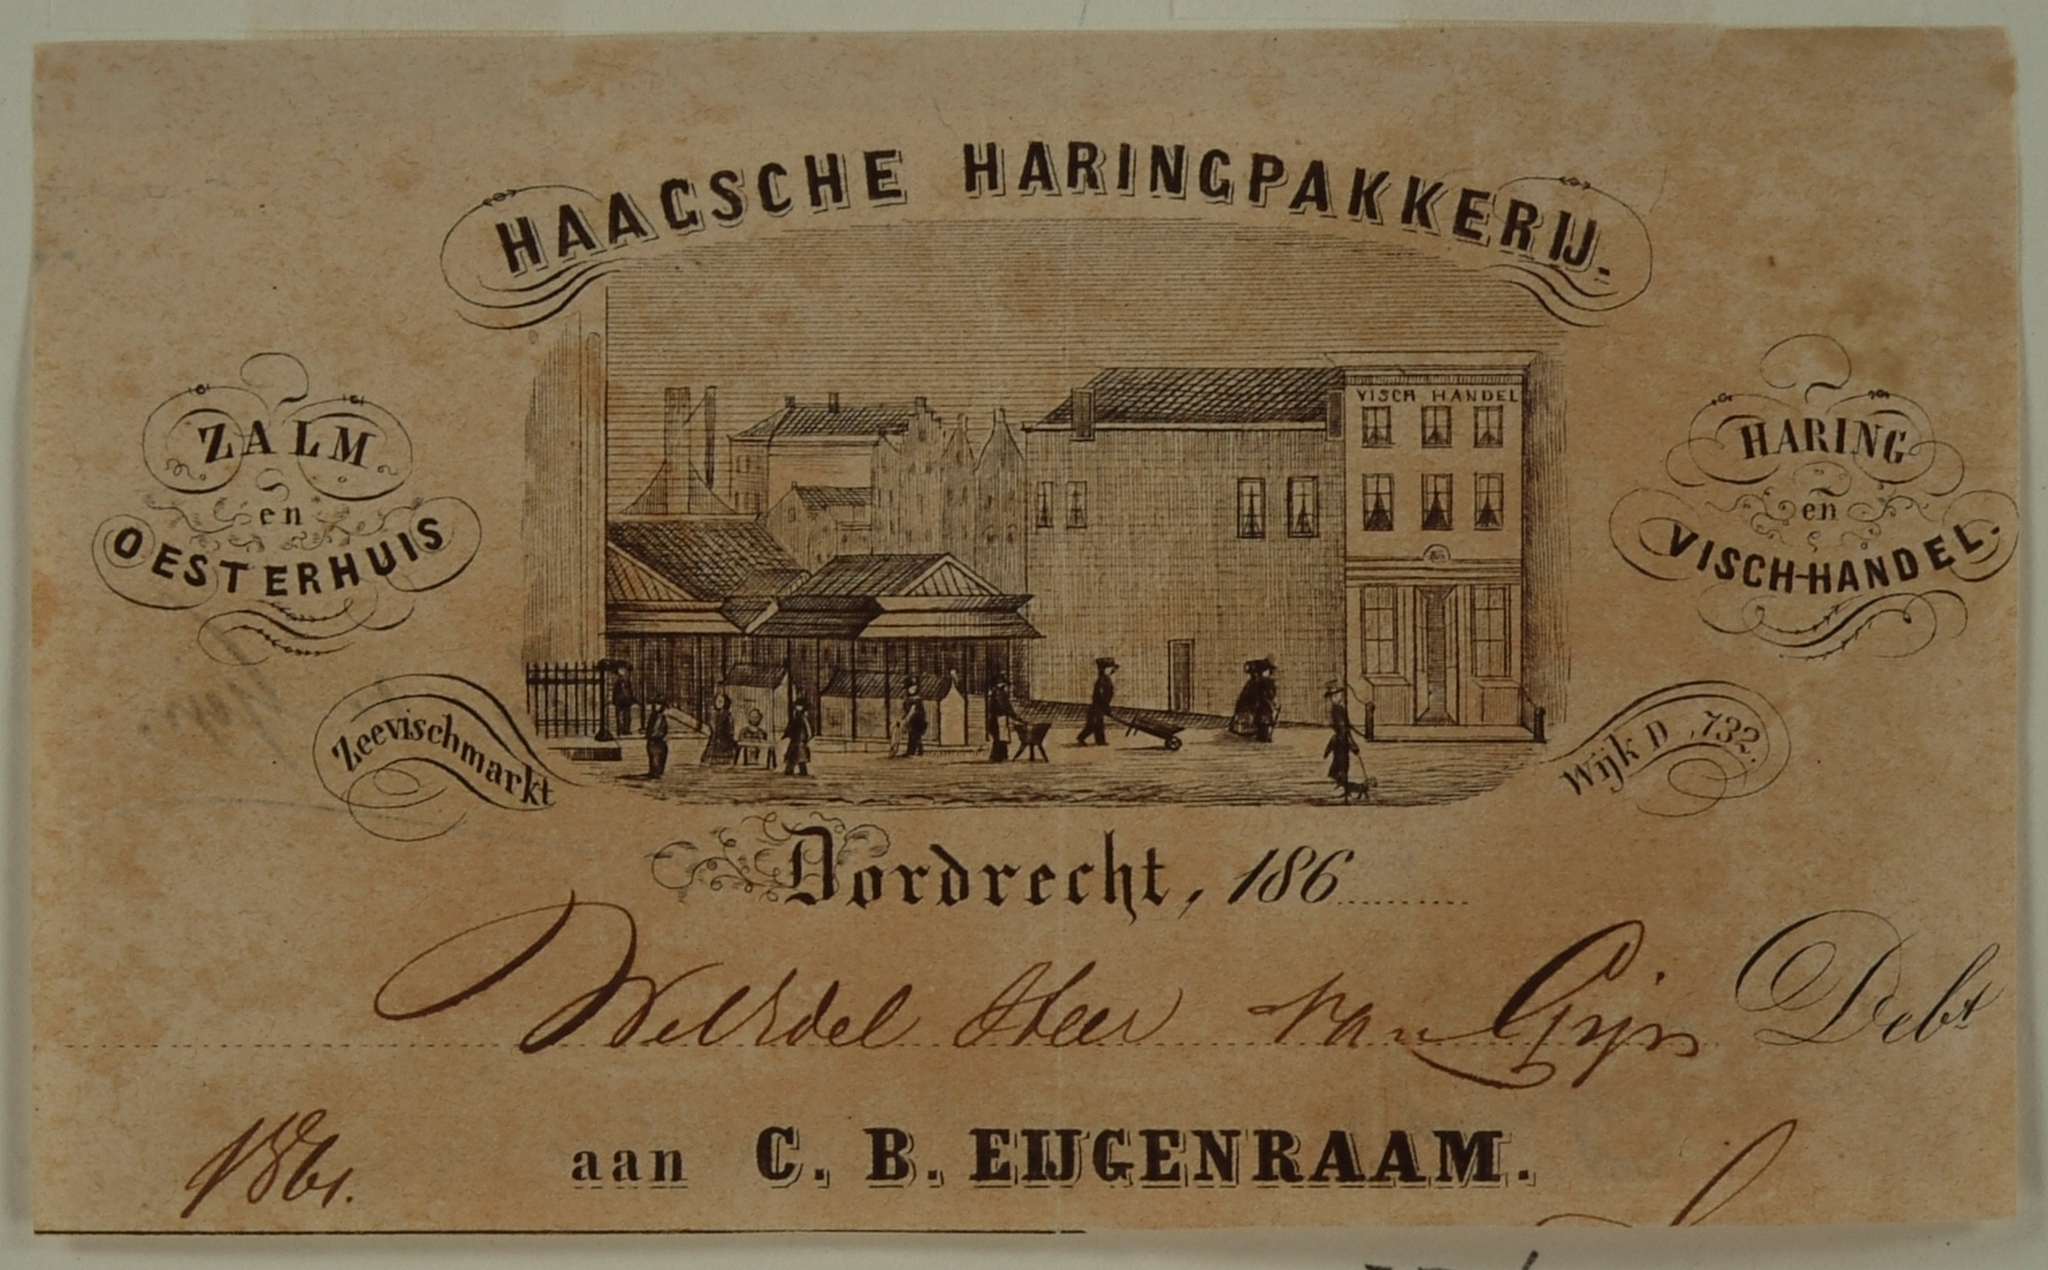 HAAGSCHE HARINGPAKKERIJ.
VISCH HANDEL
ZALM
en
OESTERHUIS
HARING
en
VISCH-HANDEL.
Zeevischmarkt
Wijk D, 732.
Dordrecht, 186
WelEdel Heer van Gijn Debt
1861.
aan C. B. EIJGENRAAM.